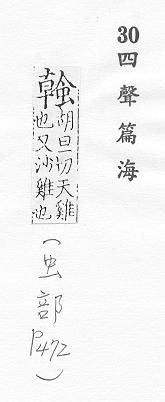 30四聲篇海
螒胡旦切天雞
也又沙雞也
(虫部P472)